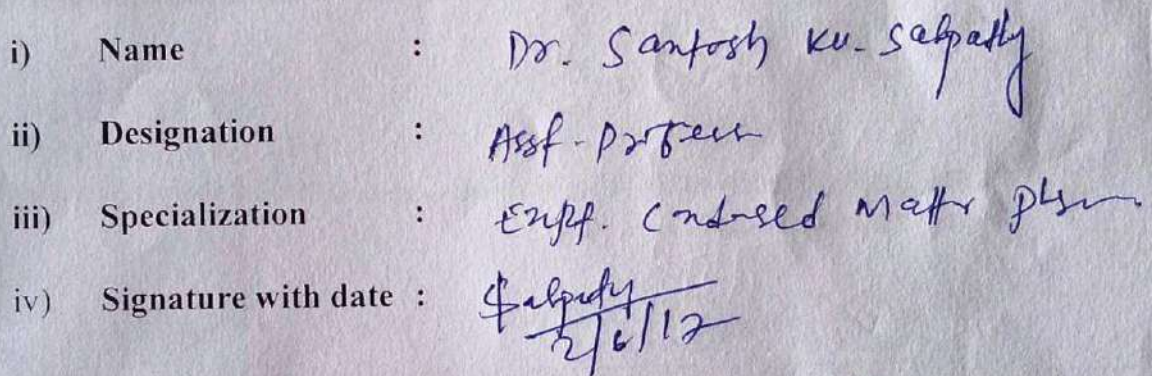 i) Name : Dr. Santosh Ku. Satpathy
ii) Designation : Asst. Professor
iii) Specialization : Expt. Condensed Matter Physics
iv) Signature with date : Satpathy
2/6/17